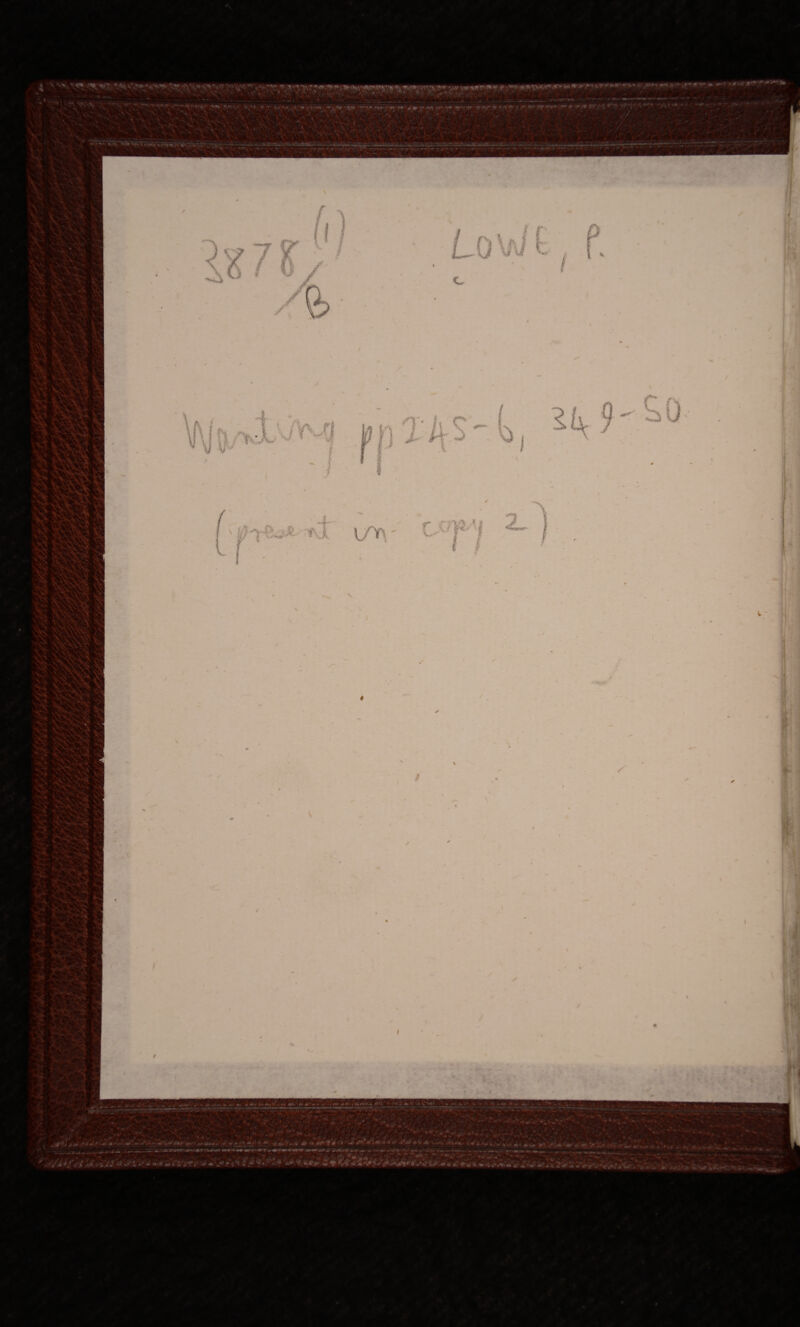 3878/B (1) LOWE, P.
Wanting pp 245-6, 349-50
(present in copy 2)